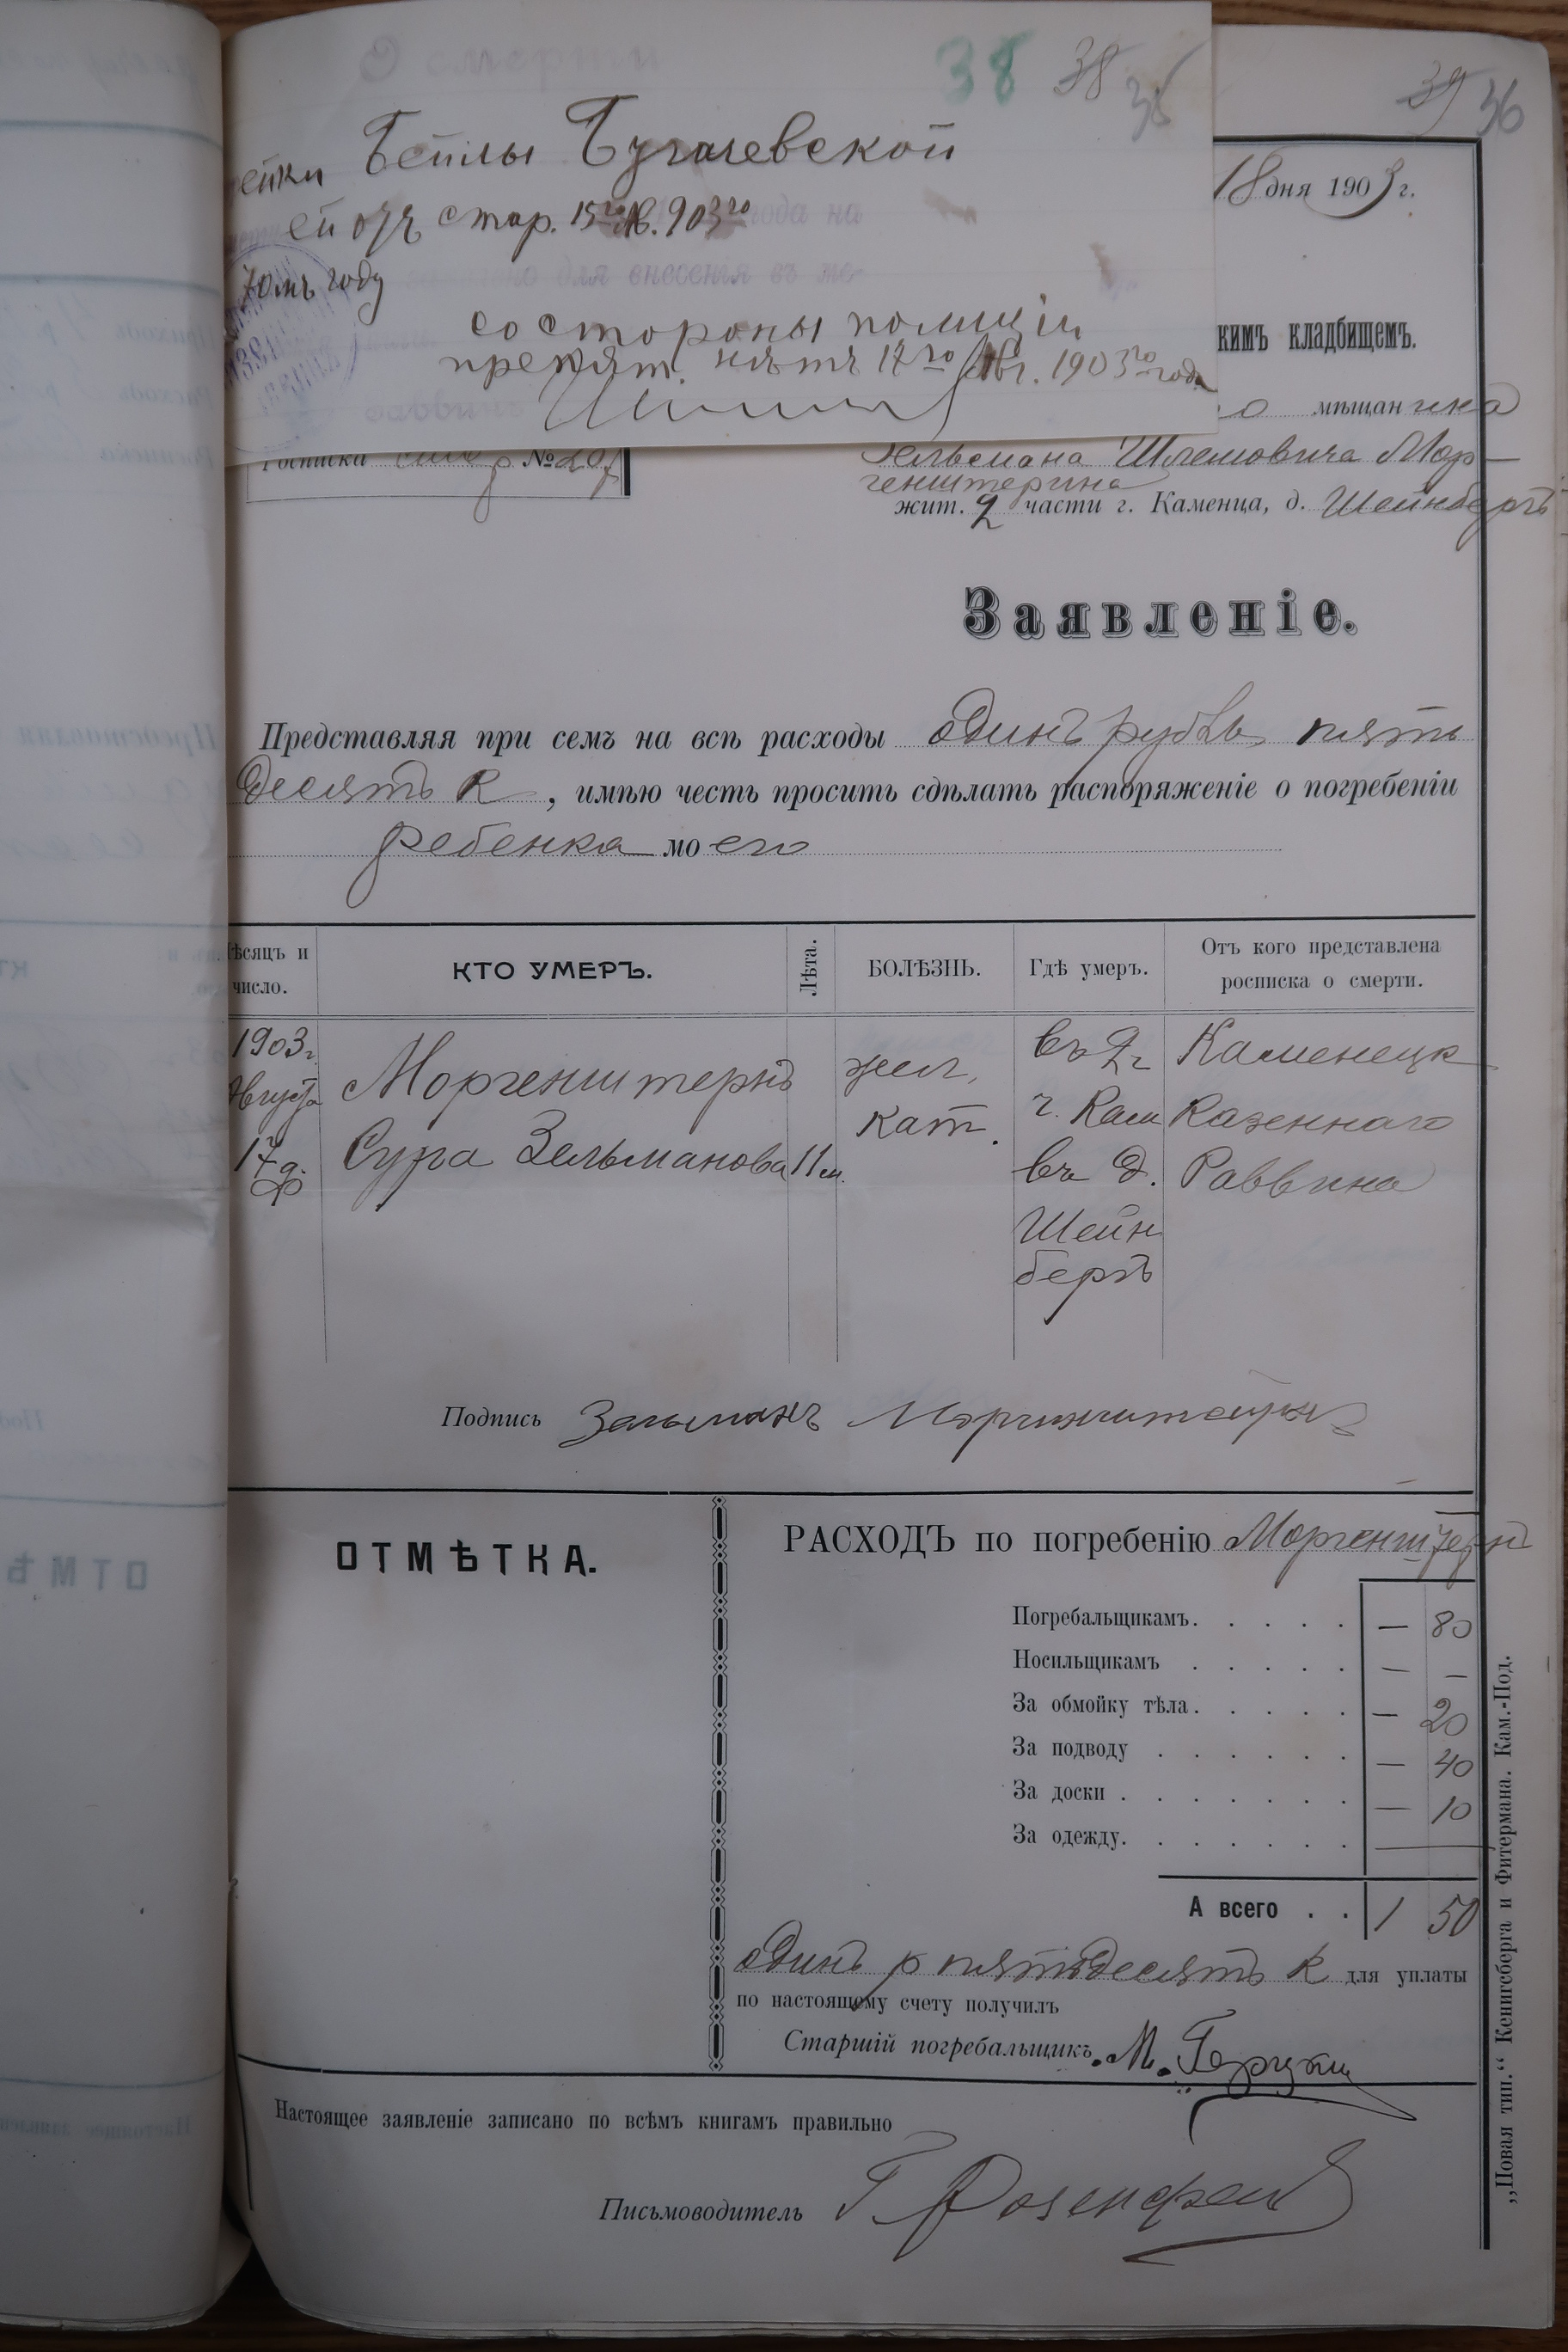 38 38 35
39 36
О смерти
Бейлы Бугачевской
ей отъ стар. 15го Ав. 903го
70мъ году
со стороны полиціи
препят. нѣтъ 17го Авг. 1903го года
18 дня 1903 г.
кимъ кладбищемъ.
мѣщанина
Росписка № 207
Зельмана Шлемовича Мор-
генштерна
жит. 2 части г. Каменца, д. Шейнбергъ
Заявленіе.
Представляя при семъ на всѣ расходы одинъ рубль пять
десятъ к , имѣю честь просить сдѣлать распоряженіе о погребеніи
ребенка моего
Мѣсяцъ и число.
КТО УМЕРЪ.
Лѣта.
БОЛѢЗНЬ.
Гдѣ умеръ.
Отъ кого представлена росписка о смерти.
1903 г. Августа 17 д.
Моргенштернъ Сура Зельманова
11 м.
жел. кат.
въ 2 ч. Кам въ д. Шейн бергъ
Каменецк Казеннаго Раввина
Подпись Зельманъ Моргинштейнъ
ОТМѢТКА.
РАСХОДЪ по погребенію Моргенштернъ
Погребальщикамъ. — 80
Носильщикамъ — —
За обмойку тѣла. — 20
За подводу — 40
За доски — 10
За одежду. —
А всего 1 50
одинъ р пятьдесятъ к для уплаты
по настоящему счету получилъ
Старшій погребальщикъ М.
Настоящее заявленіе записано по всѣмъ книгамъ правильно
Письмоводитель Г Розенфельд
„Новая тип.“ Кенигсберга и Фитермана. Кам.-Под.